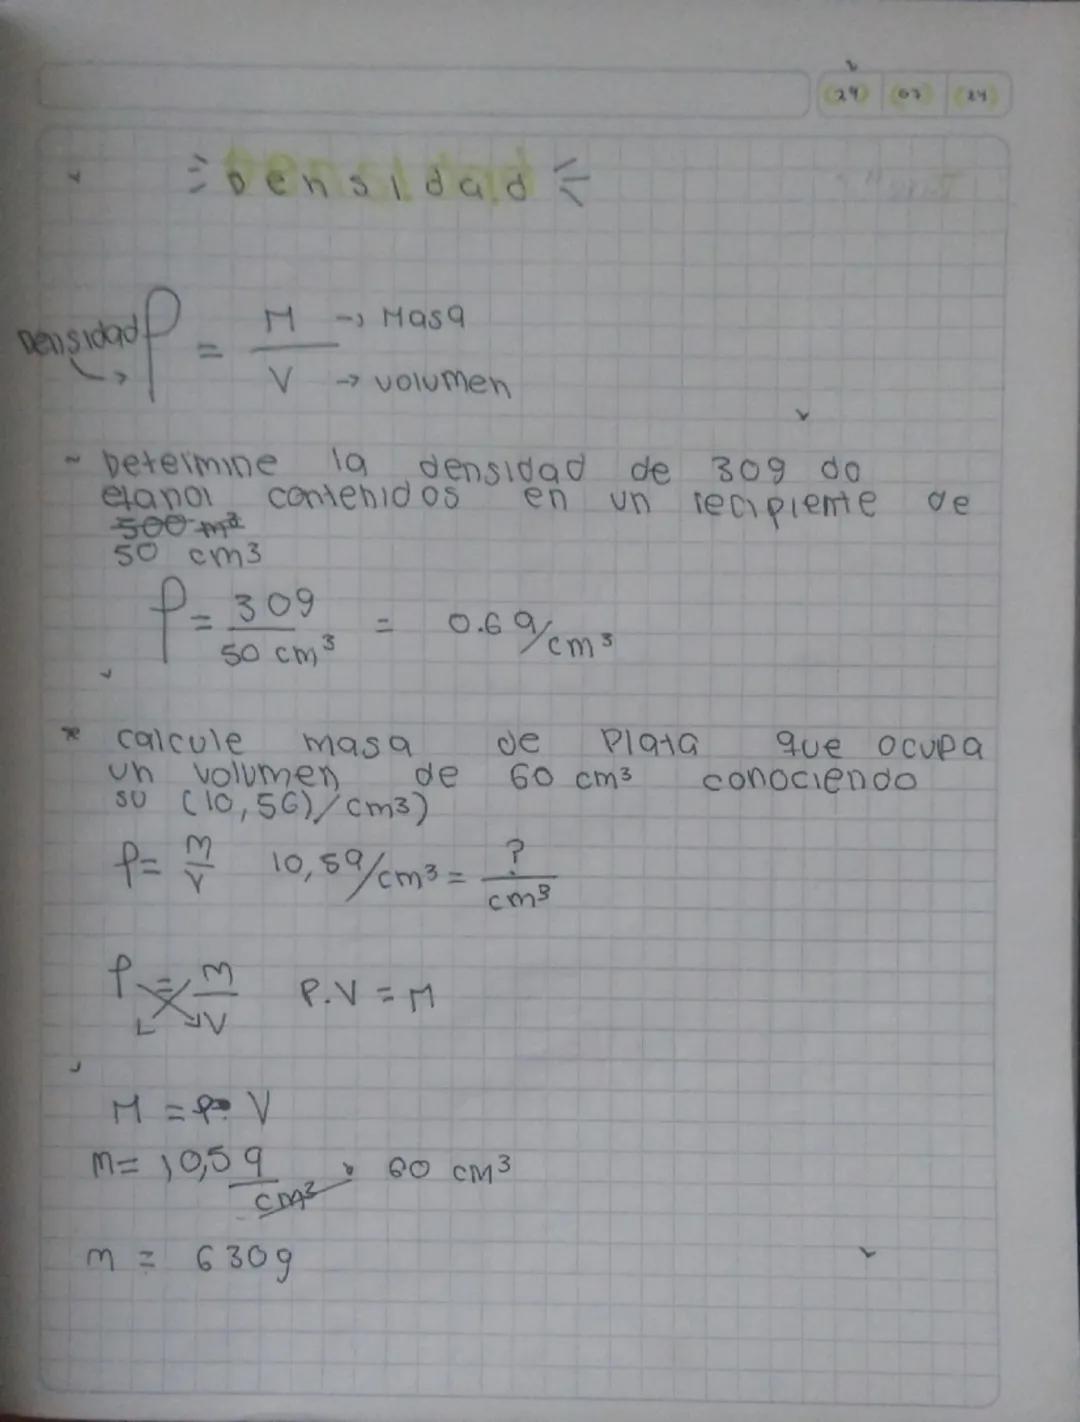 29 07 24
Densidad
Densidad ρ = M → Masa
V → volumen
~ Determine la densidad de 30g do
etanol contenidos en un recipiente de
500 m³
50 cm3
ρ = 30g / 50 cm³ = 0.6 g/cm³
* calcule masa de Plata que ocupa
un volumen de 60 cm3 conociendo
su (10,5G)/cm3)
ρ = m/V 10,5g/cm3 = ?/cm3
ρ = m/V P.V = M
M = ρ · V
m = 10,5g/cm3 · 60 cm3
m = 630g